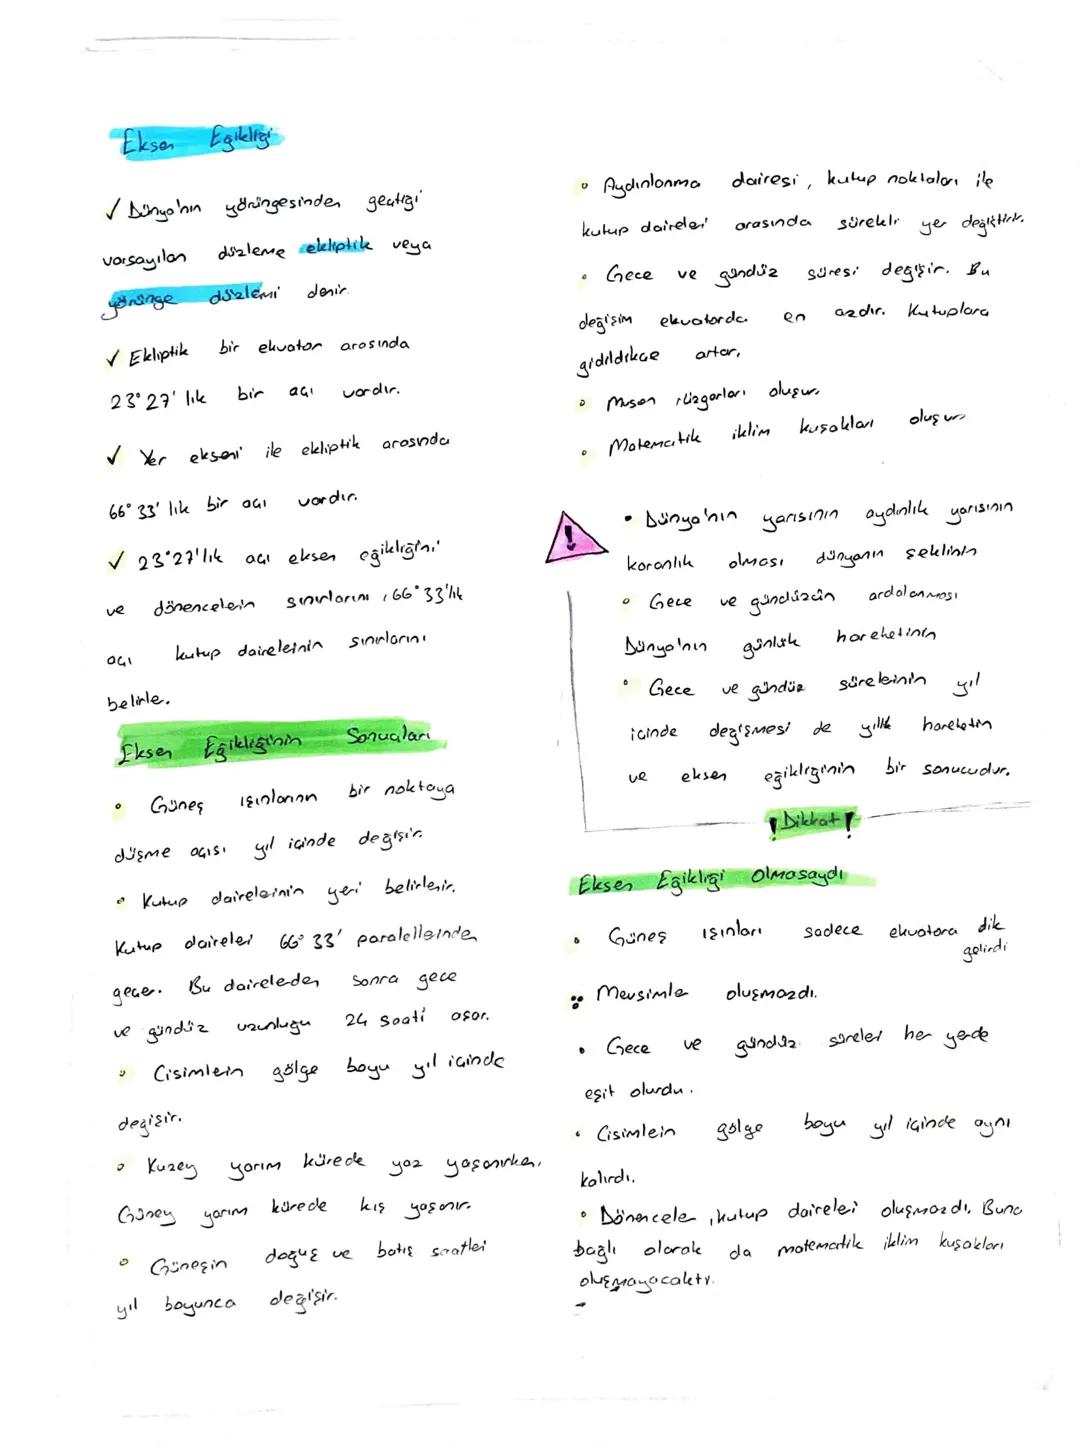 Eksen Eğikliği
✓ Dünya'nın yörüngesinden geçtiği
varsayılan düzleme ekliptik veya
yörünge düzlemi denir.
✓ Ekliptik bir ekvator arasında
23°27' lık bir açı vardır.
✓ Yer ekseni ile ekliptik arasında
66°33' lık bir açı vardır.
✓ 23°27'lık açı eksen eğikliğini
ve dönencelerin sınırlarını, 66°33'lık
açı kutup dairelerinin sınırlarını
belirler.
Eksen Eğikliğinin Sonuçları
• Güneş ışınlarının bir noktaya
düşme açısı yıl içinde değişir.
• Kutup dairelerinin yeri belirlenir.
Kutup daireleri 66°33' paralellerinden
geçer. Bu dairelerden sonra gece
ve gündüz uzunluğu 24 saati aşar.
• Cisimlerin gölge boyu yıl içinde
değişir.
• Kuzey yarım kürede yaz yaşanırken,
Güney yarım kürede kış yaşanır.
• Güneşin doğuş ve batış saatleri
yıl boyunca değişir.
• Aydınlanma dairesi, kutup noktaları ile
kutup daireleri arasında sürekli yer değiştirir.
• Gece ve gündüz süresi değişir. Bu
değişim ekvatorda en azdır. Kutuplara
gidildikçe artar.
• Muson rüzgarları oluşur.
• Matematik iklim kuşakları oluşur
!
• Dünya'nın yarısının aydınlık yarısının
karanlık olması dünyanın şeklinin
• Gece ve gündüzün ardalanması
Dünya'nın günlük hareketinin
• Gece ve gündüz sürelerinin yıl
içinde değişmesi de yıllık hareketin
ve eksen eğikliğinin bir sonucudur.
! Dikkat !
Eksen Eğikliği Olmasaydı
• Güneş ışınları sadece ekvatora dik
gelirdi
• Mevsimler oluşmazdı.
• Gece ve gündüz süreleri her yerde
eşit olurdu.
• Cisimlerin gölge boyu yıl içinde aynı
kalırdı.
• Dönenceler, kutup daireleri oluşmazdı. Buna
bağlı olarak da matematik iklim kuşakları
oluşmayacaktı.